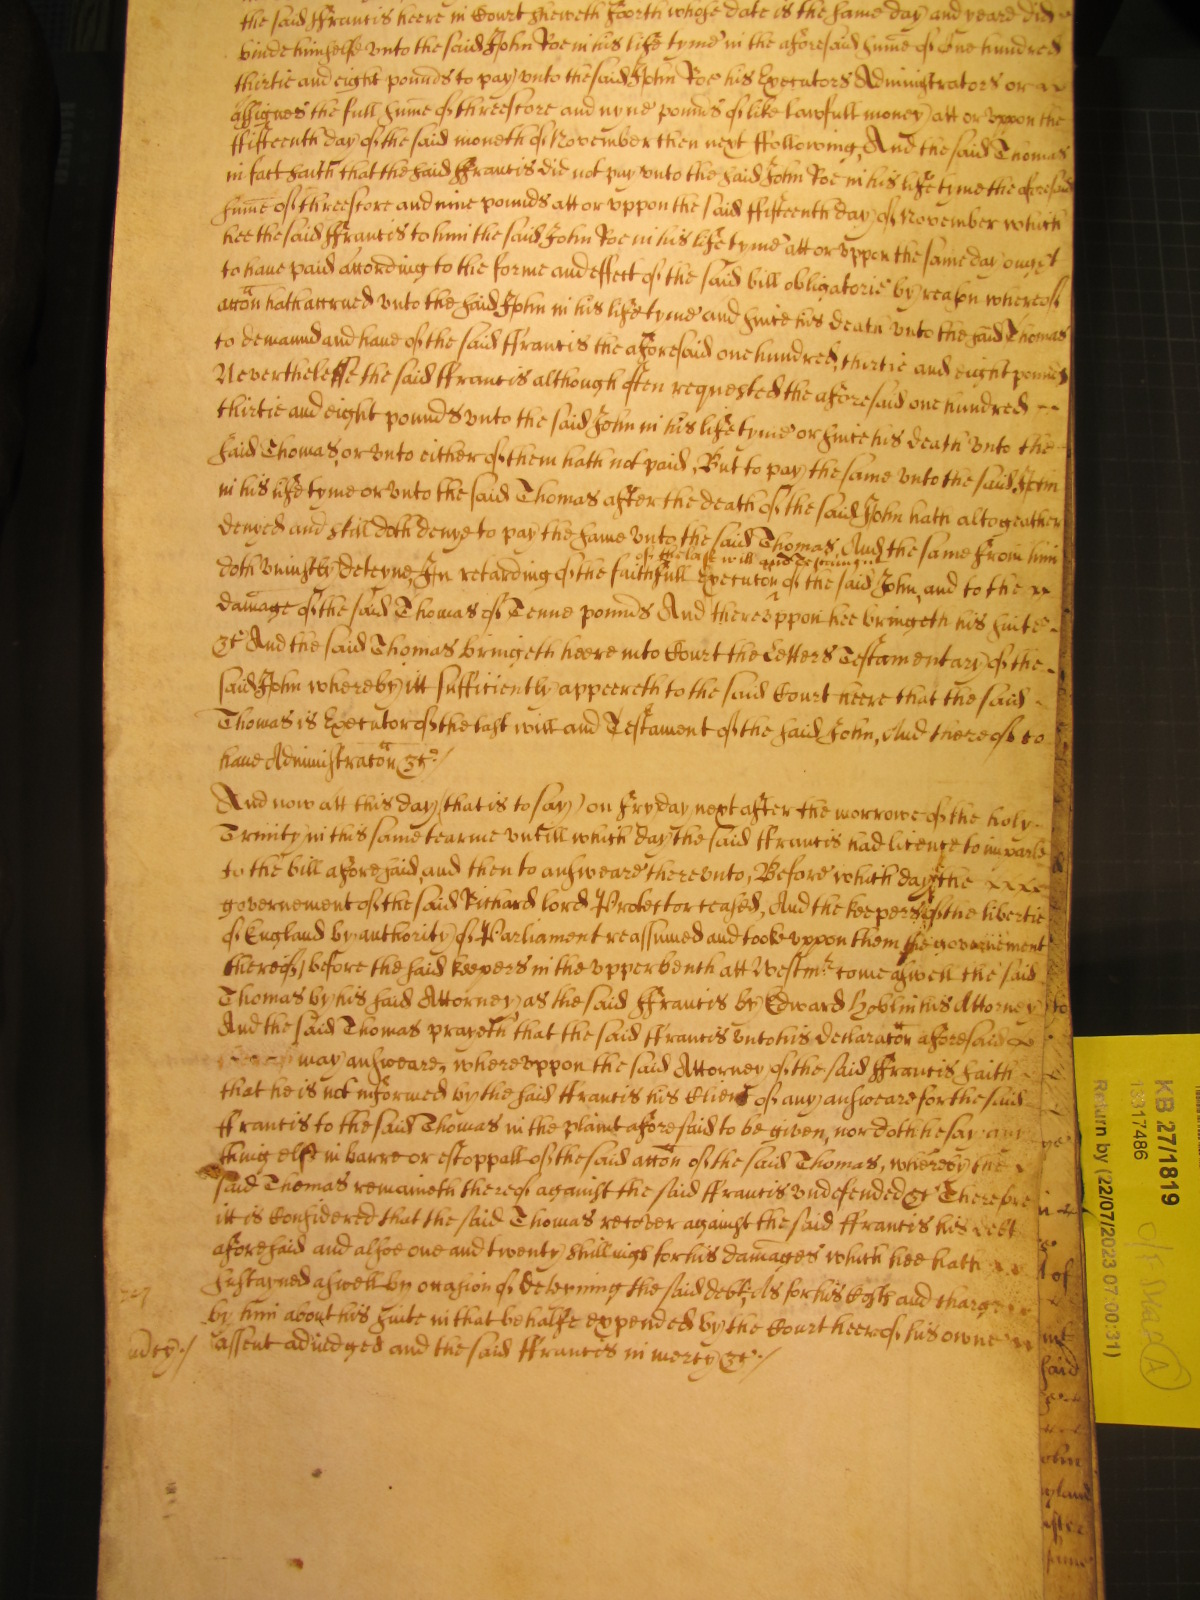 the said ffrancis heere in Court sheweth foorth whose date is the same day and yeare did
binde himselfe vnto the said John Roe in his life tyme in the aforesaid sume of One hundred
thirtie and eight pounds to pay vnto the said John Roe his Executors Administrators or
assignes the full sume of threescore and nyne pounds of like lawfull money att or vppon the
ffifteenth day of the said moneth of November then next ffollowing, And the said Thomas
in fact saith that the said ffrancis did not pay vnto the said John Roe in his life tyme the aforesaid
sume of threescore and nine pounds att or vppon the said ffifteenth day of November which
hee the said ffrancis to him the said John Roe in his life tyme att or vppon the same day ought
to haue paid according to the forme and effect of the said bill obligatorie by reason whereof
accon hath accrued vnto the said John in his life tyme and since his death vnto the said Thomas
to demaund and haue of the said ffrancis the aforesaid one hundred, thirtie and eight pounds
Neverthelesse the said ffrancis although often requested the aforesaid one hundred
thirtie and eight pounds vnto the said John in his life tyme or since his death vnto the
said Thomas, or vnto either of them hath not paid, But to pay the same vnto the said John
in his life tyme or vnto the said Thomas after the death of the said John hath altogeather
denyed and still doth denye to pay the same vnto the said Thomas, And the same from him
of the last will and Testament
doth vniustly deteyne, In retarding of the faithfull Executon of the said John, and to the
damage of the said Thomas of Tenne pounds And therevppon hee bringeth his suite
&c And the said Thomas bringeth heere into Court the Letters Testamentary of the
said John whereby itt sufficiently appeereth to the said Court heere that the said
Thomas is Executor of the last will and Testament of the said John, And thereof to
haue Administracon &c /
And now att this day (that is to say) on ffryday next after the morrowe of the holy
Trinity in this same tearme vntill which day the said ffrancis had licence to imparle
to the bill aforesaid, and then to answeare therevnto, Before which day the
governement of the said Richard lord Protector ceased, And the keepers of the libertie
of England by authority of Parliament reassumed and tooke vppon them the governement
thereof, before the said keepers in the vpper bench att Westmr come aswell the said
Thomas by his said Attorney as the said ffrancis by Edward his Attorney
And the said Thomas prayeth that the said ffrancis vnto his declaracon aforesaid
may answeare, wherevppon the said Attorney of the said ffrancis saith
that he is not informed by the said ffrancis his Client of any answeare for the said
ffrancis to the said Thomas in the plaint aforesaid to be given, nor doth he say any
thing else in barre or estoppall of the said accon of the said Thomas, whereby the
said Thomas remaineth thereof against the said ffrancis vndefended &c Therefore
itt is Considered that the said Thomas recover against the said ffrancis his debt
aforesaid and alsoe one and twenty shillings for his damages which hee hath
sustayned aswell by occasion of deteyning the said debt, As for his Costs and charges
by him about his suite in that behalfe expended by the Court heere of his owne
assent adiudged and the said ffrancis in mercy &c /
KB 27/1819
13317486
Return by (22/07/2023 07:00:31)
A